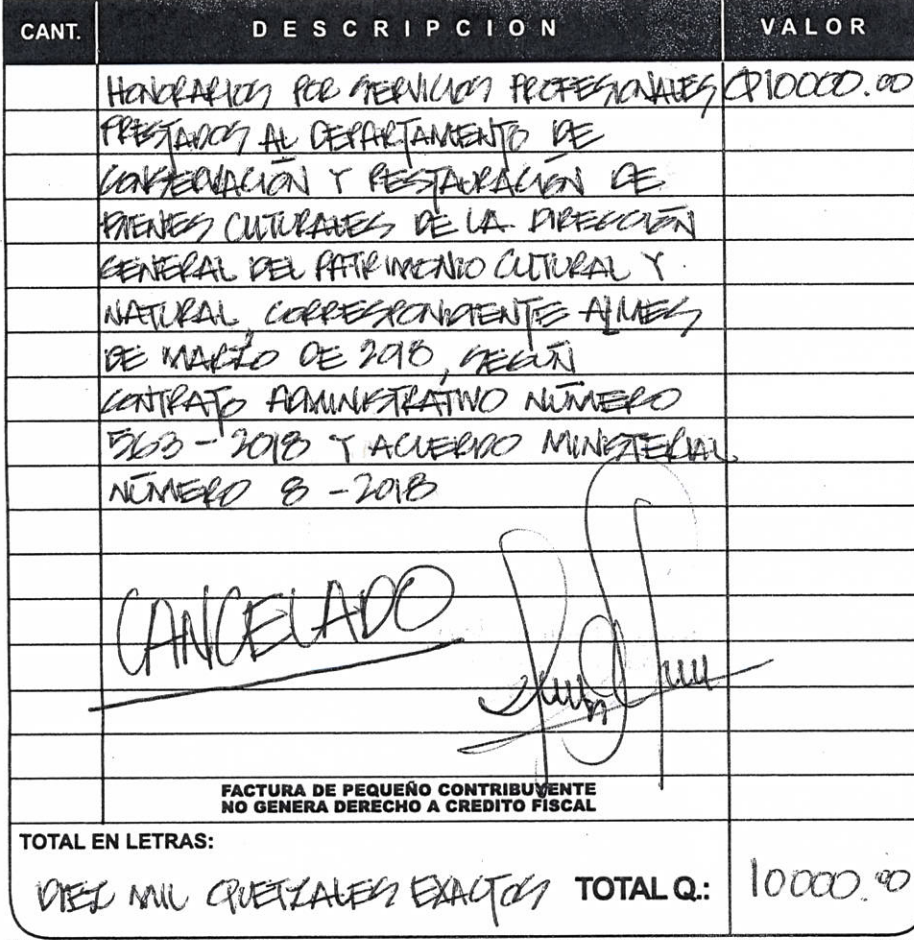 CANT. DESCRIPCION VALOR
HONORARIOS POR SERVICIOS PROFESIONALES Q10000.00
PRESTADOS AL DEPARTAMENTO DE
CONSERVACIÓN Y RESTAURACIÓN DE
BIENES CULTURALES DE LA DIRECCIÓN
GENERAL DEL PATRIMONIO CULTURAL Y
NATURAL, CORRESPONDIENTE AL MES
DE MARZO DE 2018, SEGÚN
CONTRATO ADMINISTRATIVO NÚMERO
563-2018 Y ACUERDO MINISTERIAL
NÚMERO 8-2018
CANCELADO
FACTURA DE PEQUEÑO CONTRIBUYENTE
NO GENERA DERECHO A CREDITO FISCAL
TOTAL EN LETRAS:
DIEZ MIL QUETZALES EXACTOS TOTAL Q.: 10000.00